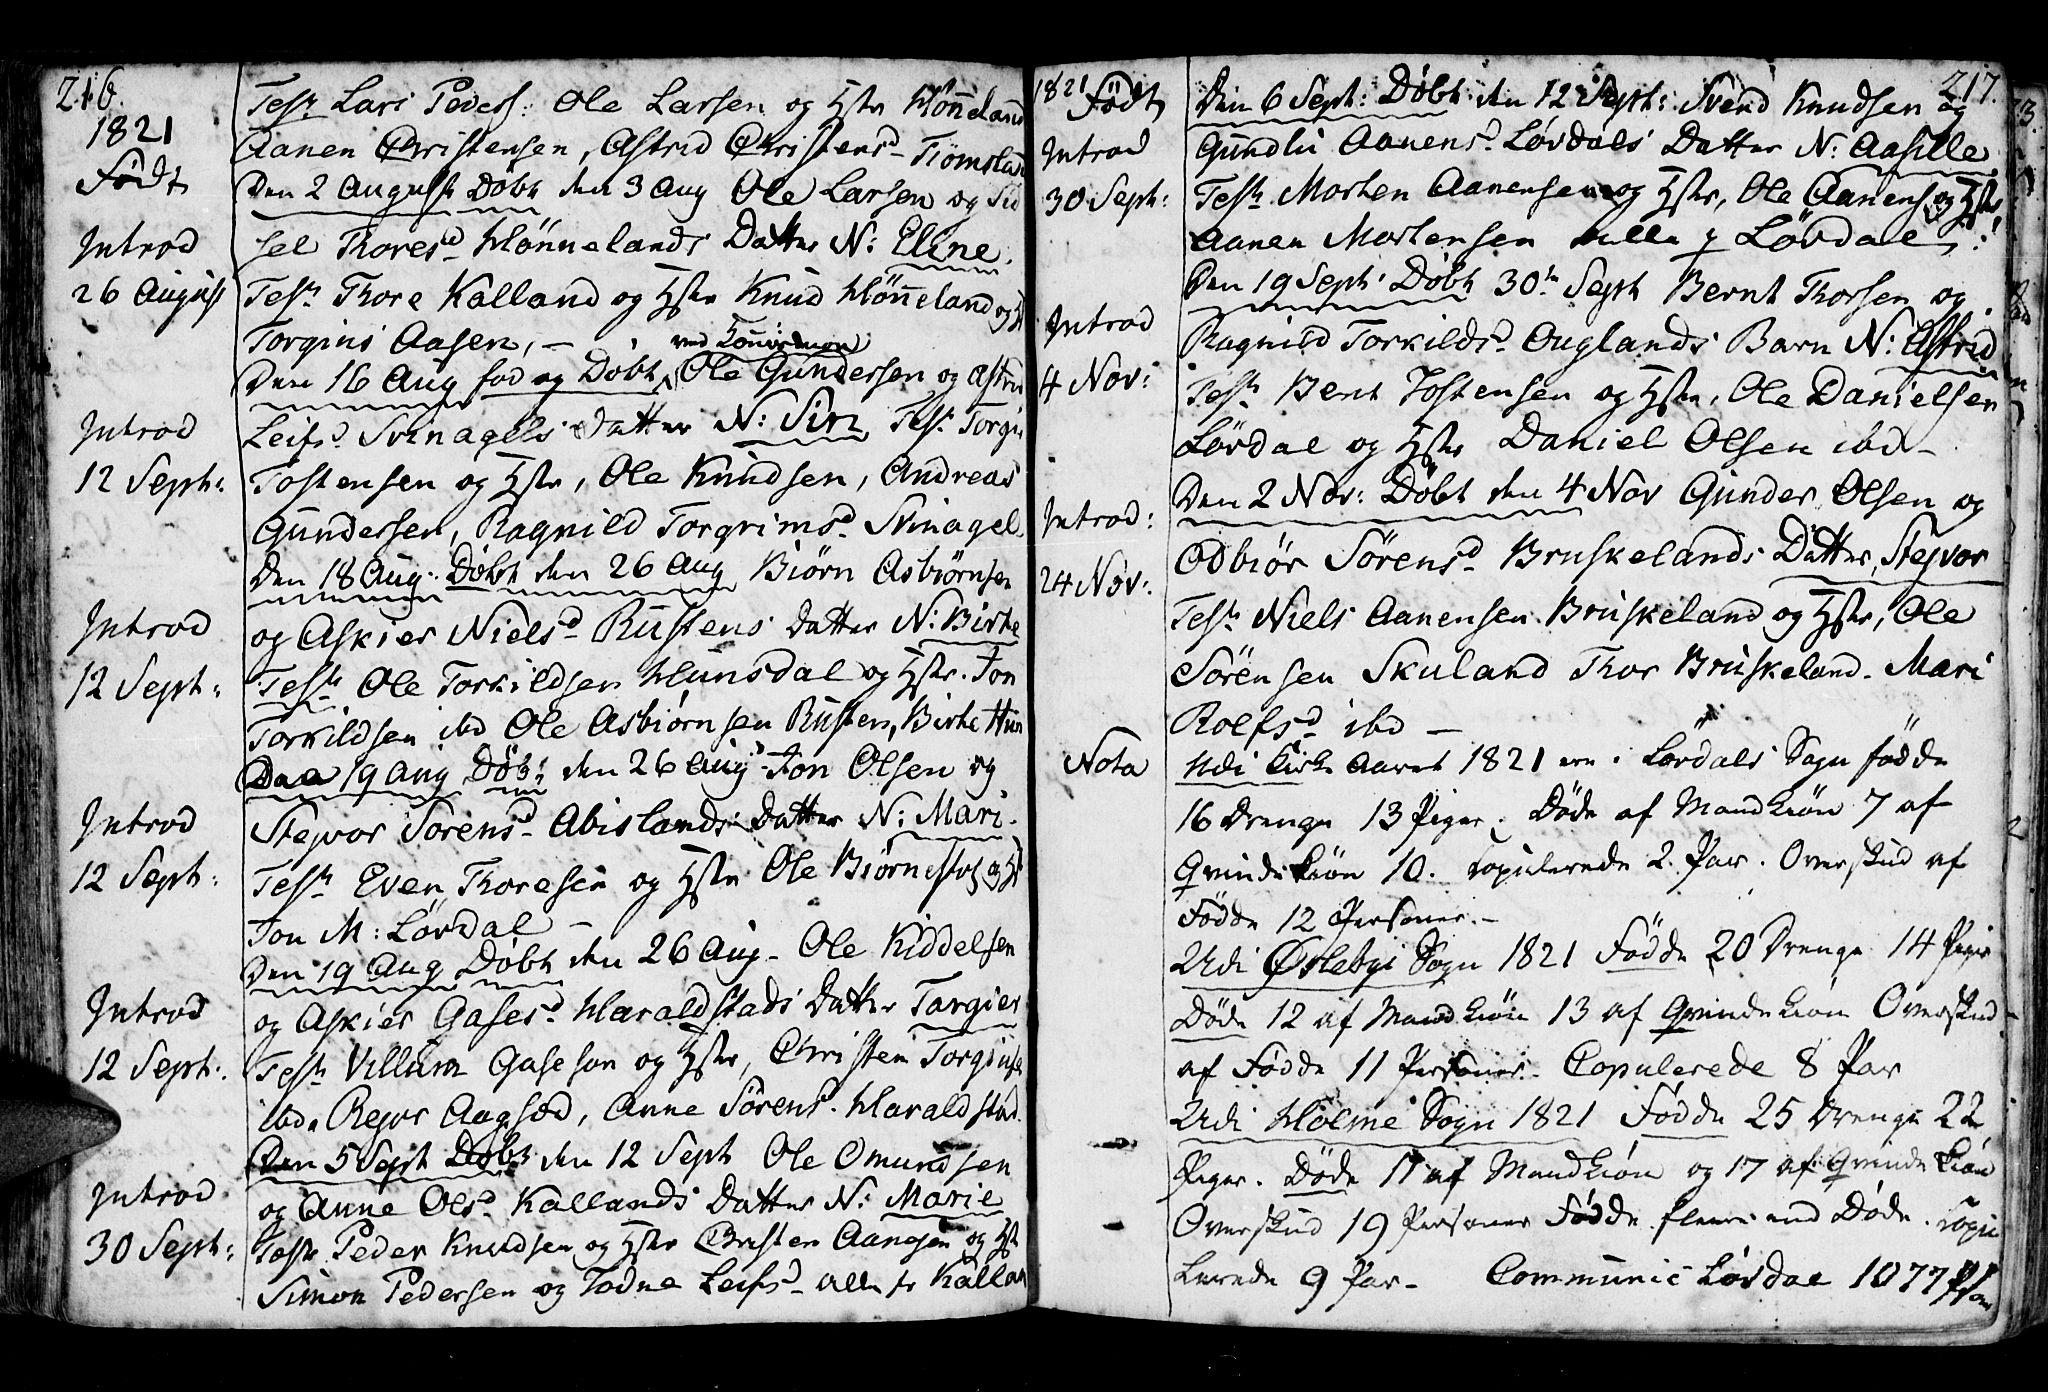 216.
1821
Født
Introd
26 August
Introd
12 Sept:
Introd
12 Sept:
Introd
12 Sept:
Introd
12 Sept:
Introd
30 Sept:
Test Lars Peders: Ole Larsen og Hstr Hønneland
Aanen Christensen, Astrid Christensd Tiømsland
Den 2 August Døbt den 3 Aug Ole Larsen og Sid
sel Thoresd Hönnelands Datter N: Eline.
Test Thore Kalland og Hstr Knud Hönneland og H
Torgius Aasen, —
Den 16 Aug fød og Døbt Ole Gundersen og Astrid
Leifsd Svinagels Datter N: Siri Test Torgiu
Tostensen og Hstr, Ole Knudsen, Andreas
Gundersen, Ragnild Torgrimsd Svinagel
Den 18 Aug: Døbt den 26 Aug Biörn Asbiörnsen
og Askier Nielsd Rustens Datter N: Birte
Test Ole Torkildsen Hunsdal og Hstr. Jon
Torkildsen ibd Ole Asbiørnsen Rusten, Birte Hun
19 Aug Döbt den 26 Aug Jon Olsen og
Stejvor Sørensd Abislands Datter N: Mari.
Test Even Thoresen og Hstr Ole Biørnestøl og H
Jon M: Lördal —
Den 19 Aug Døbt den 26 Aug Ole Kiddelsen
og Askier Gasesd Haraldstads Datter Targier
Test Villum Gaseson og Hstr, Christen Torgius
ibd. Rejer Augsed, Anne Sörensd. Haraldstad.
Den 5 Sept Døbt den 12 Sept Ole Omundsen
og Anne Olsd Kallands Datter N: Marie
Test Peder Knudsen og Hstr Christen Aanesen og H
Simon Pedersen og Todne Leifsd alle fr Kalland
217.
1821 Født
Introd
30 Sept:
Introd
4 Nov:
Introd:
24 Nov:
Nota
Den 6 Sept: Döbt den 12 Sept: Svend Knudsen og
Gundlu Aanensd Lövdals Datter N: Aasille
Test Morten Aanensen og Hstr, Ole Aanens og Hstr
Aanen Mortensen alle Lövdal
Den 19 Sept: Döbt 30te Sept Bernt Thorsen og
Ragnild Torkildsd Ouglands Barn N: Astrid
Test Bent Jostensen og Hstr, Ole Danielsen
Lördal og Hstr Daniel Olsen ibd —
Den 2 Nov: Döbt den 4 Nov Gunder Olsen og
Odbiör Sörensd Bruskelands Datter, Stejvor
Test Niels Aanensen Bruskeland og Hstr, Ole
Sörensen Skuland Thor Bruskeland. Mari
Rolfsd ibd —
Udi Kirke Aaret 1821 ere i Lördals Sogn fødde
16 Drenge 13 Piger. Døde af Mandkiön 7 af
Qvindekiön 10. Copulerede 2 Par. Overskud af
Födde 12 Personer. —
Udi Øslebye Sogn 1821 Födde 20 Drenge 14 Piger
Døde 12 af Mandkiön 13 af Qvindekiön Overskud
af Födde 11 Personer. Copulerede 8 Par
Udi Holme Sogn 1821 Födde 25 Drenge 22
Piger. Døde 11 af Mandkiön og 17 af Qvindekiön
Overskud 19 Personer Födde fleere end Døde. Copu
lerede 9 Par — Communic Lördal 1077